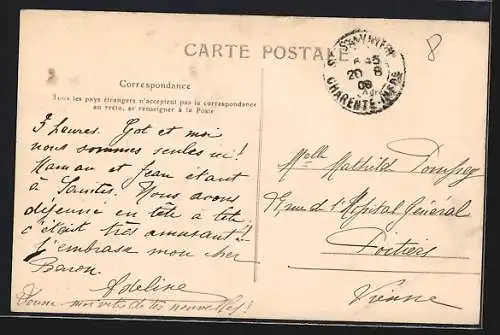 CARTE POSTALE
8
ST SAVINIEN
6 45
20 8
08
CHARENTE-INFRE
Correspondance
Tous les pays étrangers n'acceptent pas la correspondance
au recto, se renseigner à la Poste
3 heures. Got et moi
nous sommes seules ici !
Maman et Jean étant
à Saintes. Nous avons
déjeuné en tête à tête
c'était très amusant !!
j'embrasse mon cher
Baron.
Adeline
Donne moi vite de tes nouvelles !
Melle Mathilde
rue de l'Hôpital Général
Poitiers
Vienne